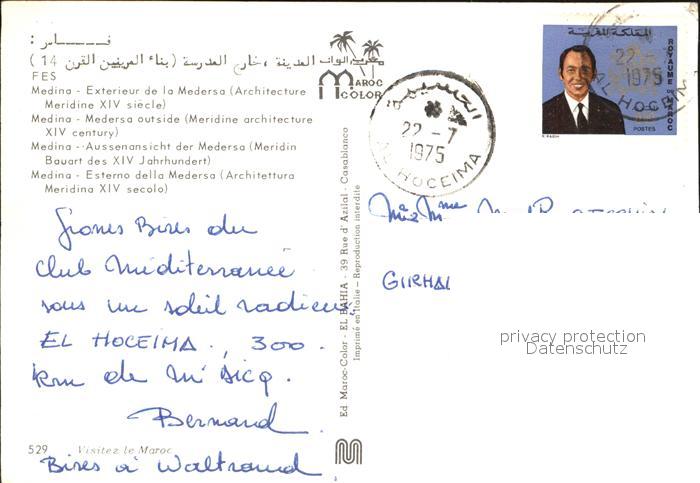 فــــاس :
المدينة ، خارج المدرسة (بناء المرينيين القرن 14)
FES
Medina - Exterieur de la Medersa (Architecture
Meridine XIV siècle)
Medina - Medersa outside (Meridine architecture
XIV century)
Medina - Aussenansicht der Medersa (Meridin
Bauart des XIV Jahrhundert)
Medina - Esterno della Medersa (Architettura
Meridina XIV secolo)
MAROC
COLOR
الحسيمة
22 - 7
1975
AL HOCEIMA
المملكة المغربية
ROYAUME DU MAROC
POSTES
22 -
1975
AL HOCEIMA
Grosses Bises du
Club Méditerranée
sous un soleil radieux
EL HOCEIMA, 300
km de
Bernard
Bises à Waltraud
529 Visitez le Maroc
Ed Maroc-Color - EL BAHIA - 39 Rue d'Azilal - Casablanca
Imprimé en Italie - Reproduction interdite
privacy protection
Datenschutz